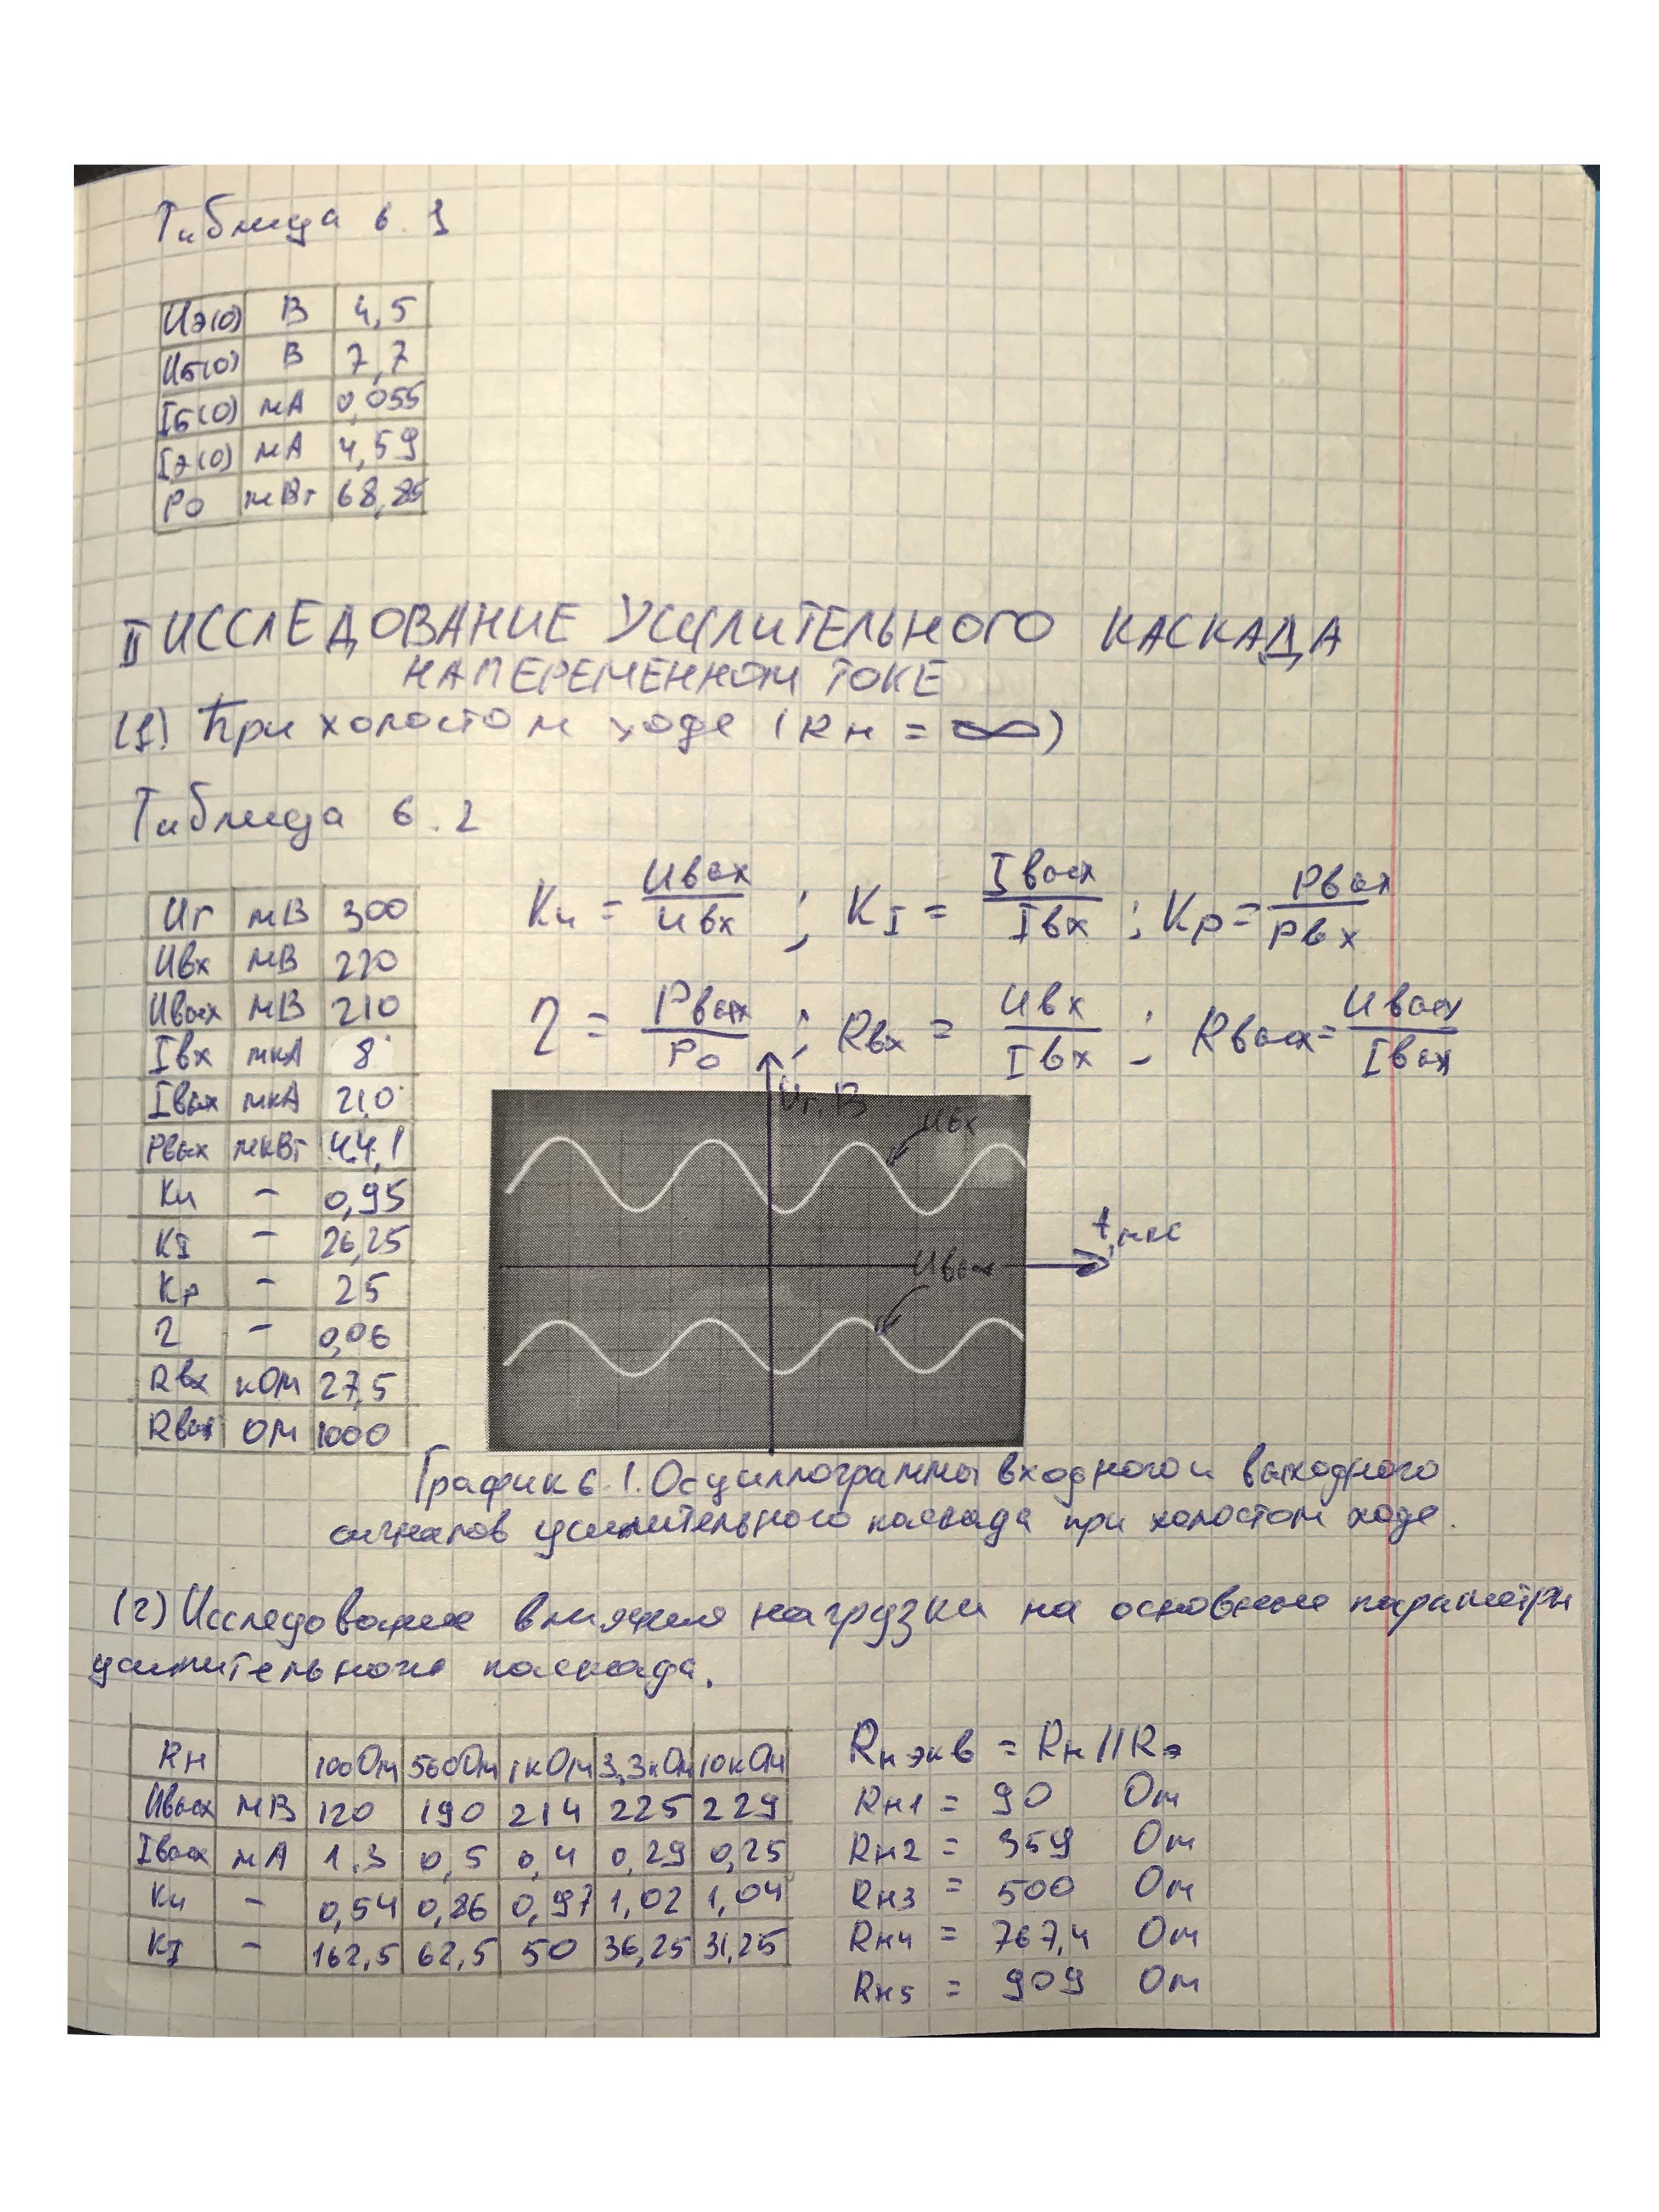 Таблица 6.1
Uэ(0) В 4,5
Uб(0) В 7,7
Iб(0) мА 0,055
Iэ(0) мА 4,59
Р0 мВт 68,85
II ИССЛЕДОВАНИЕ УСИЛИТЕЛЬНОГО КАСКАДА
НА ПЕРЕМЕННОМ ТОКЕ
(1) При холостом ходе (Rн = ∞)
Таблица 6.2
Uг мВ 300
Uвх мВ 220
Uвых мВ 210
Iвх мкА 8
Iвых мкА 210
Рвых мкВт 44,1
Кu – 0,95
КI – 26,25
Кр – 25
η – 0,06
Rвх кОм 27,5
Rвых Ом 1000
Кu = Uвых / Uвх ; КI = Iвых / Iвх ; Кр = Рвых / Рвх
η = Рвых / Р0 ; Rвх = Uвх / Iвх ; Rвых = Uвых / Iвых
Uг, В
Uвх
t, мкс
Uвых
График 6.1. Осциллограммы входного и выходного
сигналов усилительного каскада при холостом ходе.
(2) Исследование влияния нагрузки на основные параметры
усилительного каскада.
Rн 100Ом 560Ом 1кОм 3,3кОм 10кОм
Uвых мВ 120 190 214 225 229
Iвых мА 1.3 0,5 0,4 0,29 0,25
Кu – 0,54 0,86 0,97 1,02 1,04
КI – 162,5 62,5 50 36,25 31,25
Rн экв = Rн // Rэ
Rн1 = 90 Ом
Rн2 = 359 Ом
Rн3 = 500 Ом
Rн4 = 767,4 Ом
Rн5 = 909 Ом